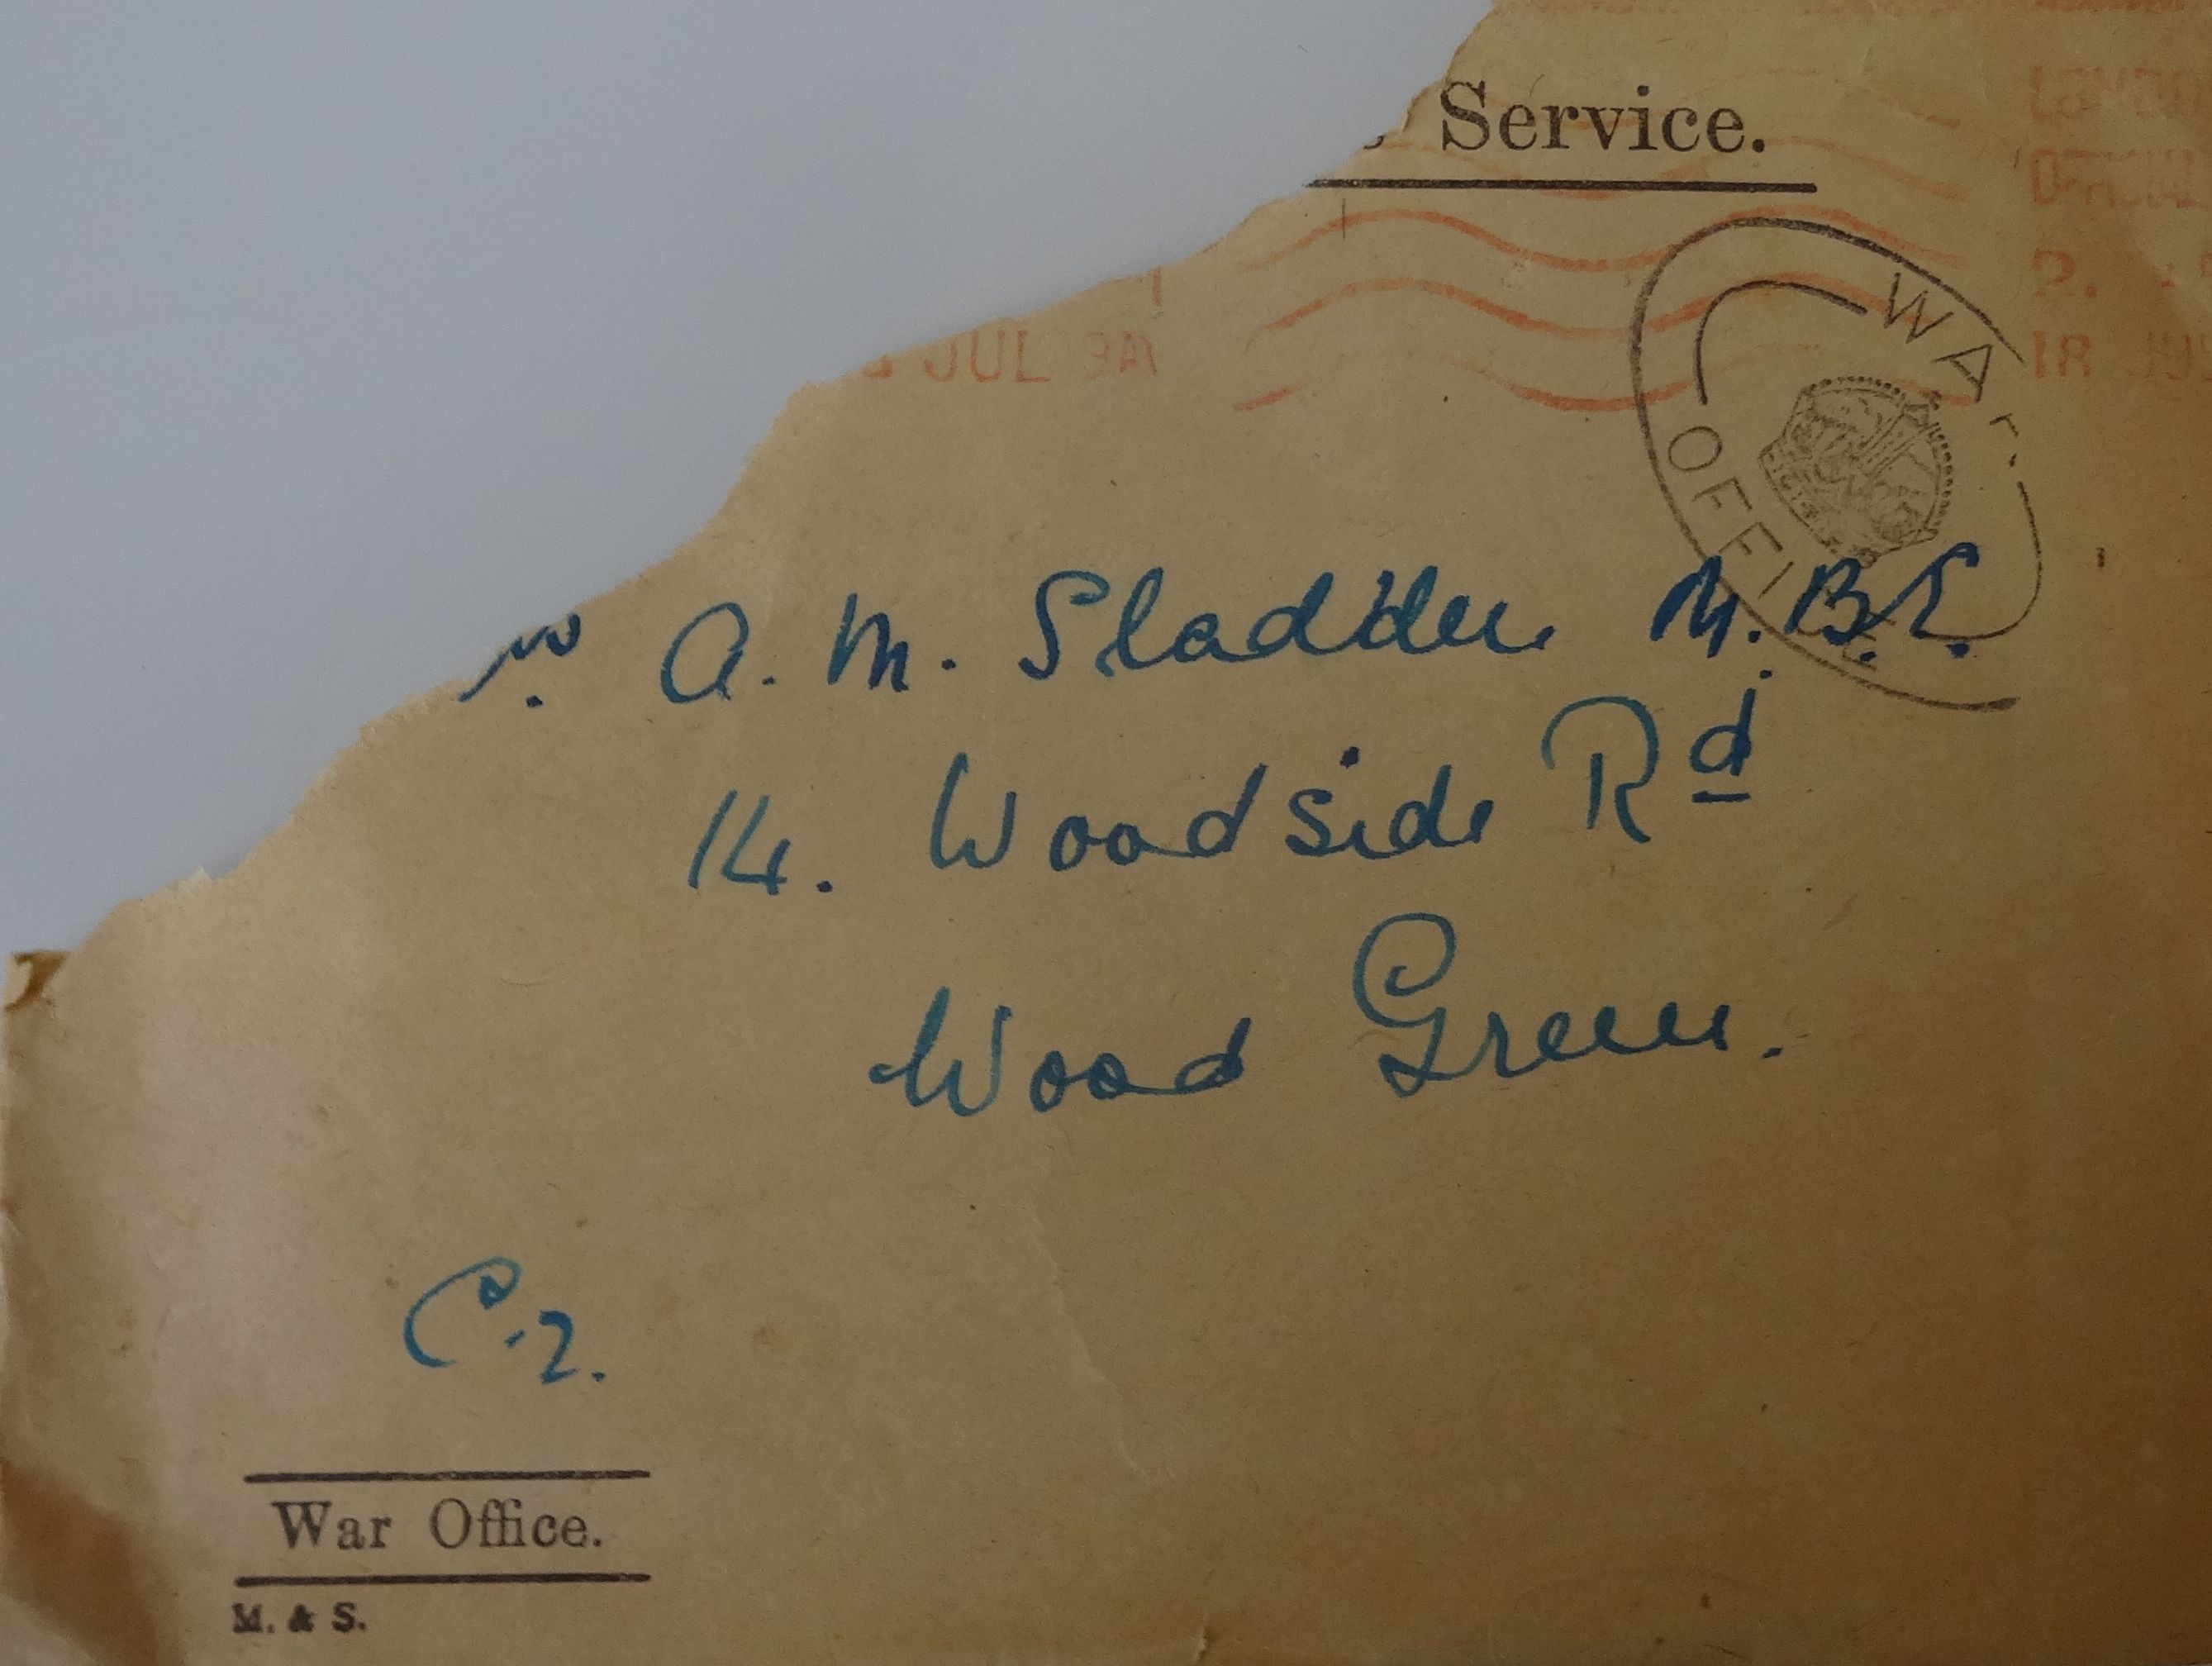 Service.
LONDON
OFFICIAL
JUL 9A
18 JUL
WAR
OFFICE
A. M. Sladden M.B.E.
14. Woodside Rd
Wood Green.
C.2.
War Office.
M. & S.